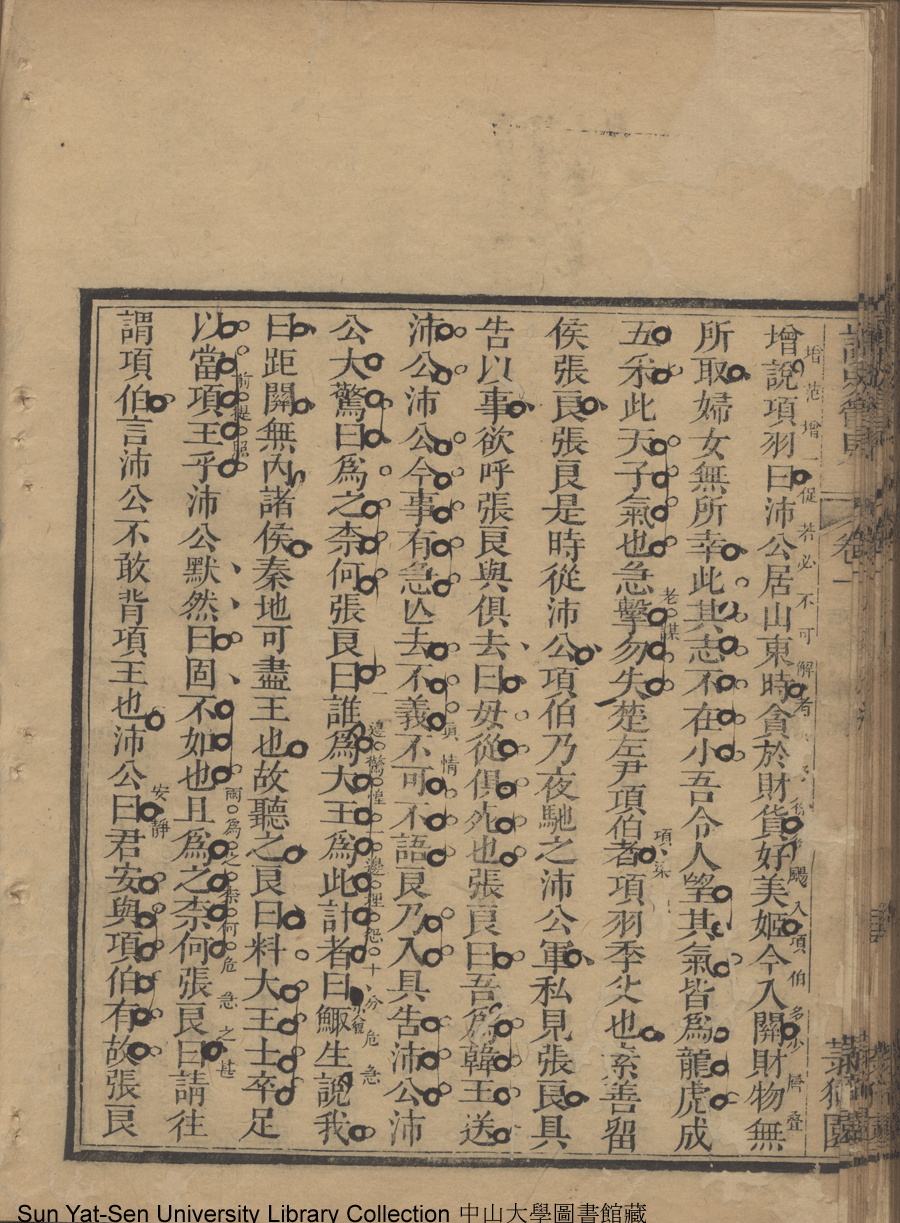 增說項羽曰沛公居山東時貪於財貨好美姬今入關財物無
所取婦女無所幸此其志不在小吾令人望其氣皆爲龍虎成
五采此天子氣也急擊勿失楚左尹項伯者項羽季父也素善留
侯張良張良是時從沛公項伯乃夜馳之沛公軍私見張良具
告以事欲呼張良與俱去曰毋從俱死也張良曰吾爲韓王送
沛公沛公今事有急亾去不義不可不語良乃入具告沛公沛
公大驚曰爲之柰何張良曰誰爲大王爲此計者曰鯫生說我
曰距關無內諸侯秦地可盡王也故聽之良曰料大王士卒足
以當項王乎沛公默然曰固不如也且爲之柰何張良曰請往
謂項伯言沛公不敢背項王也沛公曰君安與項伯有故張良
老謀
安靜
前提照
一邊驚惶一邊埋怨十分危急
兩爲之柰何危急之甚
Sun Yat-Sen University Library Collection 中山大學圖書館藏